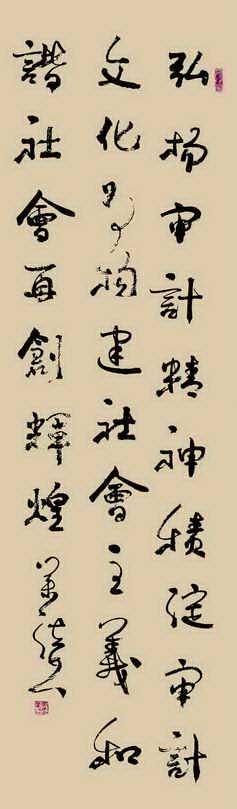 弘扬审計精神積淀审計
文化為构建社會主義和
諧社會再創輝煌